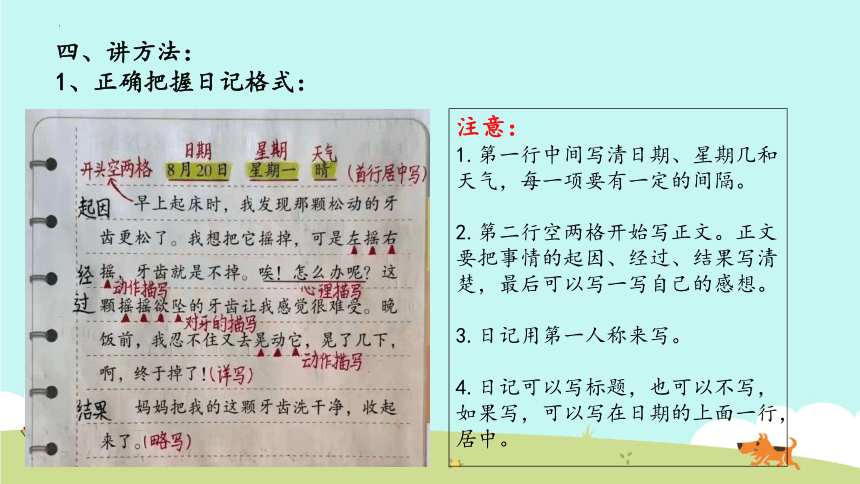 四、讲方法：
1、正确把握日记格式：
日期 星期 天气
开头空两格 8月20日 星期一 晴 (首行居中写)
起因 早上起床时，我发现那颗松动的牙
齿更松了。我想把它摇掉，可是左摇右
经 摇，牙齿就是不掉。唉！怎么办呢？这
动作描写 心理描写
过 颗摇摇欲坠的牙齿让我感觉很难受。晚
对牙的描写
饭前，我忍不住又去晃动它，晃了几下，
动作描写
啊，终于掉了！(详写)
结果 妈妈把我的这颗牙齿洗干净，收起
来了。(略写)
注意：
1.第一行中间写清日期、星期几和
天气，每一项要有一定的间隔。
2.第二行空两格开始写正文。正文
要把事情的起因、经过、结果写清
楚，最后可以写一写自己的感想。
3.日记用第一人称来写。
4.日记可以写标题，也可以不写，
如果写，可以写在日期的上面一行，
居中。